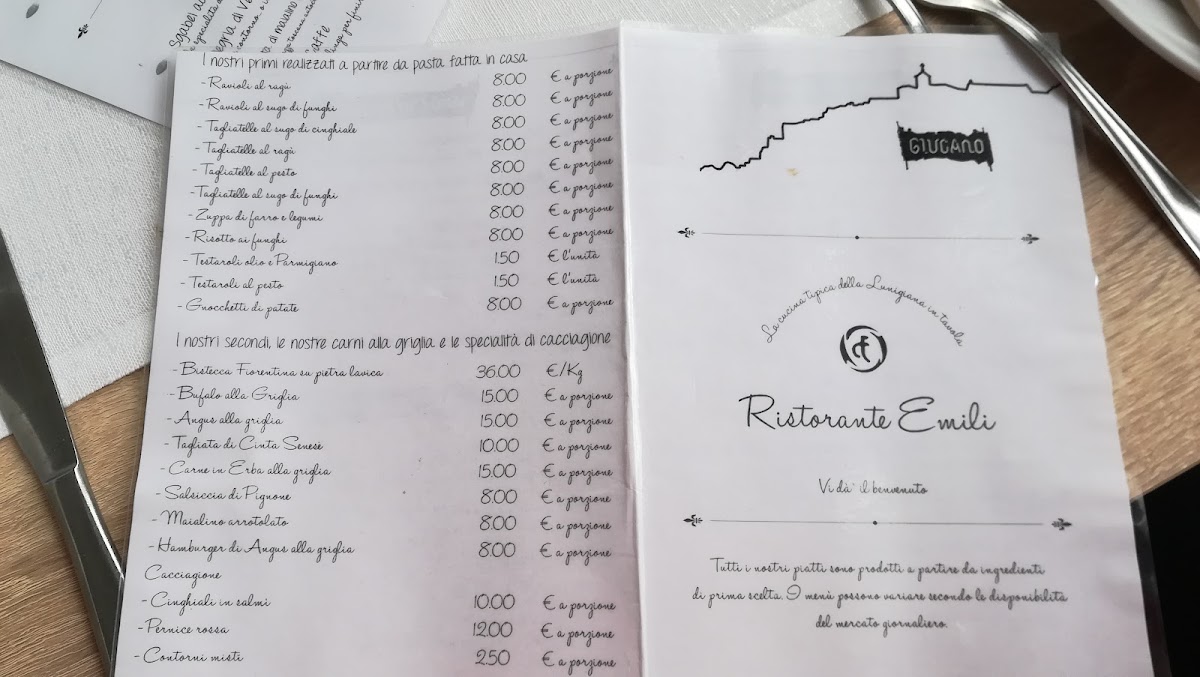 I nostri primi realizzati a partire da pasta fatta in casa
- Ravioli al ragù 8.00 € a porzione
- Ravioli al sugo di funghi 8.00 € a porzione
- Tagliatelle al sugo di cinghiale 8.00 € a porzione
- Tagliatelle al ragù 8.00 € a porzione
- Tagliatelle al pesto 8.00 € a porzione
- Tagliatelle al sugo di funghi 8.00 € a porzione
- Zuppa di farro e legumi 8.00 € a porzione
- Risotto ai funghi 8.00 € a porzione
- Testaroli olio e Parmigiano 1.50 € l'unità
- Testaroli al pesto 1.50 € l'unità
- Gnocchetti di patate 8.00 € a porzione
I nostri secondi, le nostre carni alla griglia e le specialità di cacciagione
- Bistecca Fiorentina su pietra lavica 36.00 €/Kg
- Bufalo alla Griglia 15.00 € a porzione
- Angus alla griglia 15.00 € a porzione
- Tagliata di Cinta Senese 10.00 € a porzione
- Carne in Erba alla griglia 15.00 € a porzione
- Salsiccia di Pignone 8.00 € a porzione
- Maialino arrotolato 8.00 € a porzione
- Hamburger di Angus alla griglia 8.00 € a porzione
Cacciagione
- Cinghiali in salmì 10.00 € a porzione
- Pernice rossa 12.00 € a porzione
- Contorni misti 2.50 € a porzione
GIUCANO
La cucina tipica della Lunigiana in tavola
Ristorante Emili
Vi dà il benvenuto
Tutti i nostri piatti sono prodotti a partire da ingredienti
di prima scelta. I menù possono variare secondo le disponibilità
del mercato giornaliero.